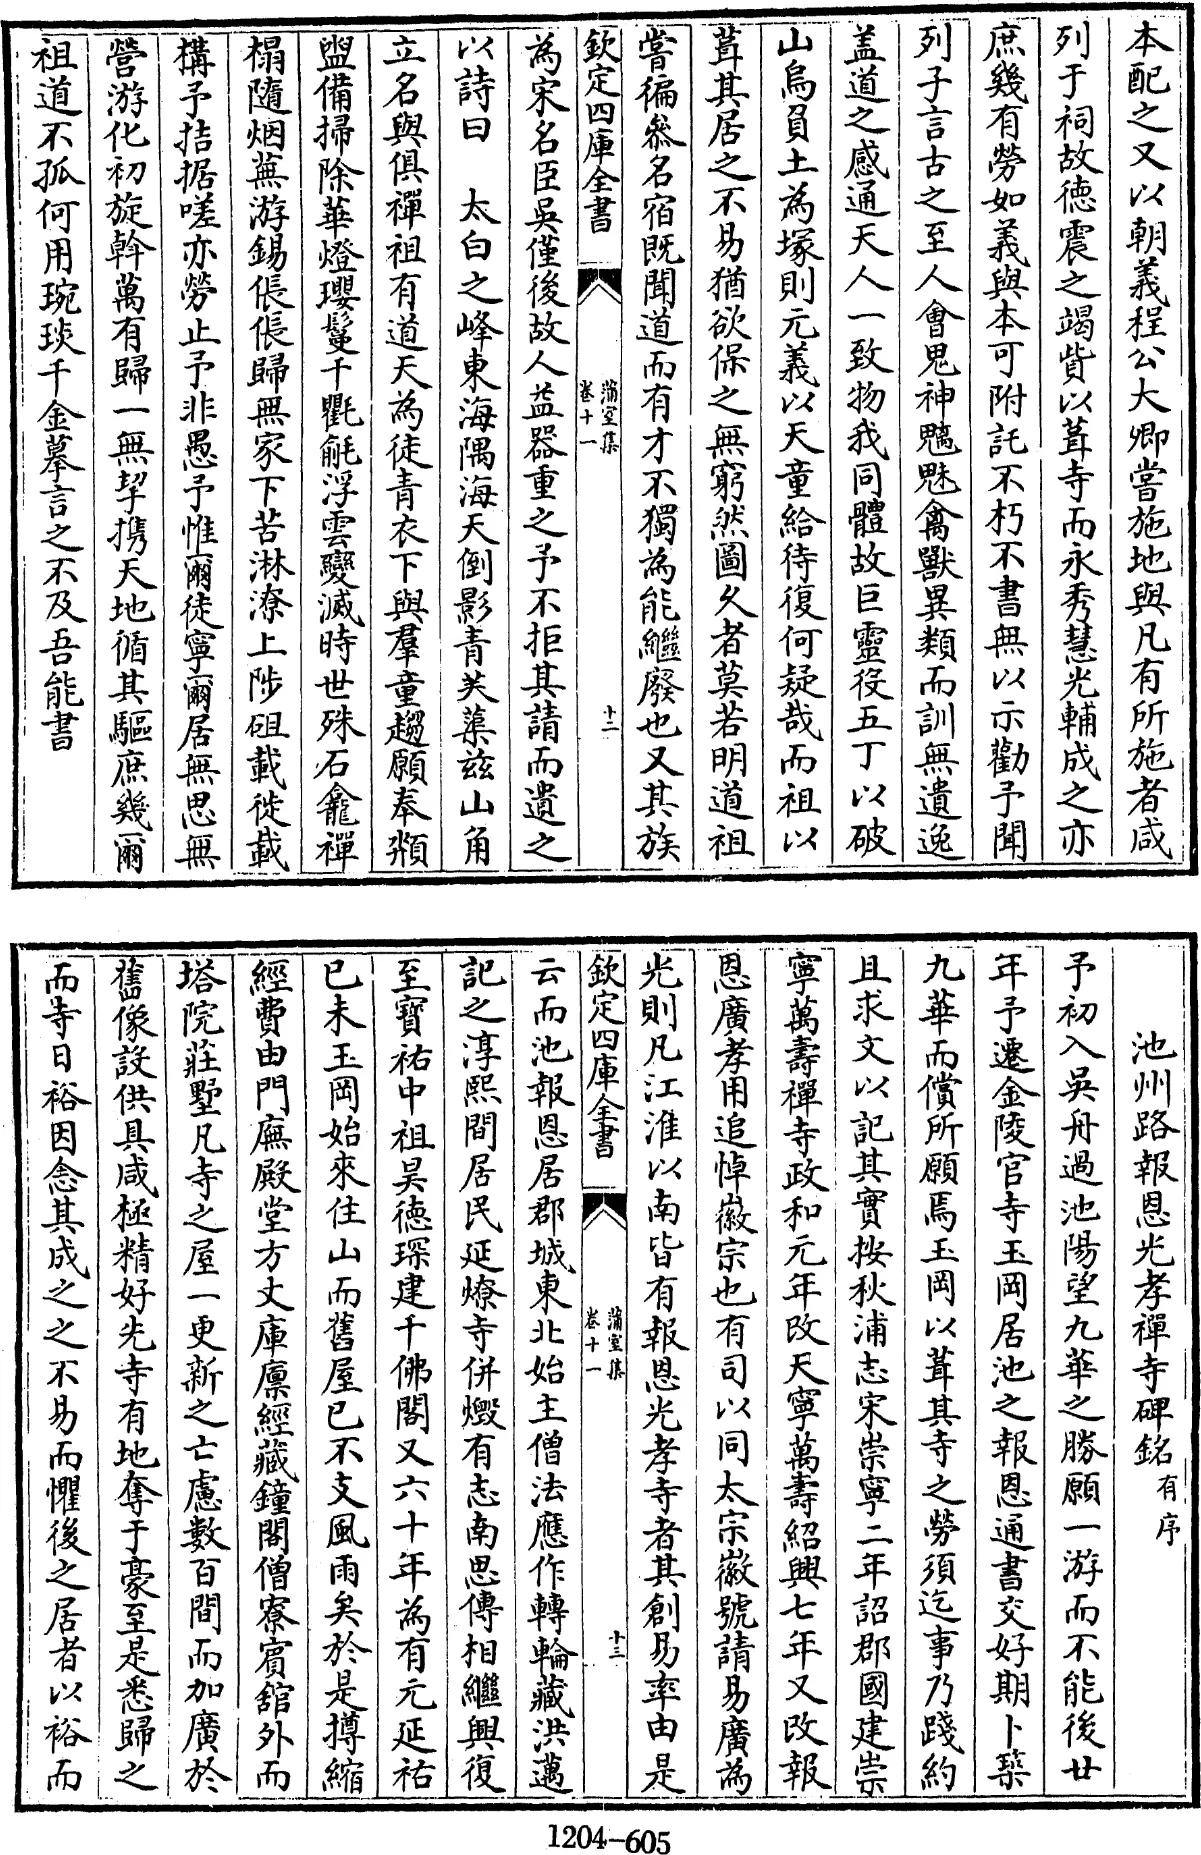 本配之又以朝義程公大卿嘗施地與凡有所施者咸
列于祠故德震之竭貲以葺寺而永秀慧光輔成之亦
庶幾有勞如義與本可附託不朽不書無以示勸予聞
列子言古之至人會鬼神魑魅禽獸異類而訓無遺逸
盖道之感通天人一致物我同體故巨靈役五丁以破
山烏負土為塚則元義以天童給待復何疑哉而祖以
葺其居之不易猶欲保之無窮然圖久者莫若明道祖
嘗徧叅名宿既聞道而有才不獨為能繼廢也又其族
欽定四庫全書
蒲室集
卷十一
十二
為宋名臣吳僅後故人益器重之予不拒其請而遺之
以詩曰 太白之峰東海隅海天倒影青芙蕖兹山角
立名與俱禪祖有道天為徒青衣下與羣童趨願奉頮
盥備掃除華燈瓔鬘千氍毹浮雲變滅時世殊石龕禪
榻隨烟蕪游錫倀倀歸無家下苦淋潦上陟砠載徙載
構予拮据嗟亦勞止予非愚予惟爾徒寧爾居無思無
營游化初旋斡萬有歸一無挈攜天地循其驅庶幾爾
祖道不孤何用琬琰千金摹言之不及吾能書
池州路報恩光孝禪寺碑銘有序
予初入吳舟過池陽望九華之勝願一游而不能後廿
年予遷金陵官寺玉岡居池之報恩通書交好期卜築
九華而償所願焉玉岡以葺其寺之勞須迄事乃踐約
且求文以記其實按秋浦志宋崇寧二年詔郡國建崇
寧萬壽禪寺政和元年改天寧萬壽紹興七年又改報
恩廣孝用追悼徽宗也有司以同太宗徽號請易廣為
光則凡江淮以南皆有報恩光孝寺者其創易率由是
欽定四庫全書
蒲室集
卷十一
十三
云而池報恩居郡城東北始主僧法應作轉輪藏洪邁
記之淳熙間居民延燎寺併燬有志南思傳相繼興復
至寶祐中祖吴德琛建千佛閣又六十年為有元延祐
已未玉岡始來住山而舊屋已不支風雨矣於是撙縮
經費由門廡殿堂方丈庫廩經藏鐘閣僧寮賓舘外而
塔院莊墅凡寺之屋一更新之亡慮數百間而加廣於
舊像設供具咸極精好先寺有地奪于豪至是悉歸之
而寺日裕因念其成之之不易而懼後之居者以裕而
1204-605